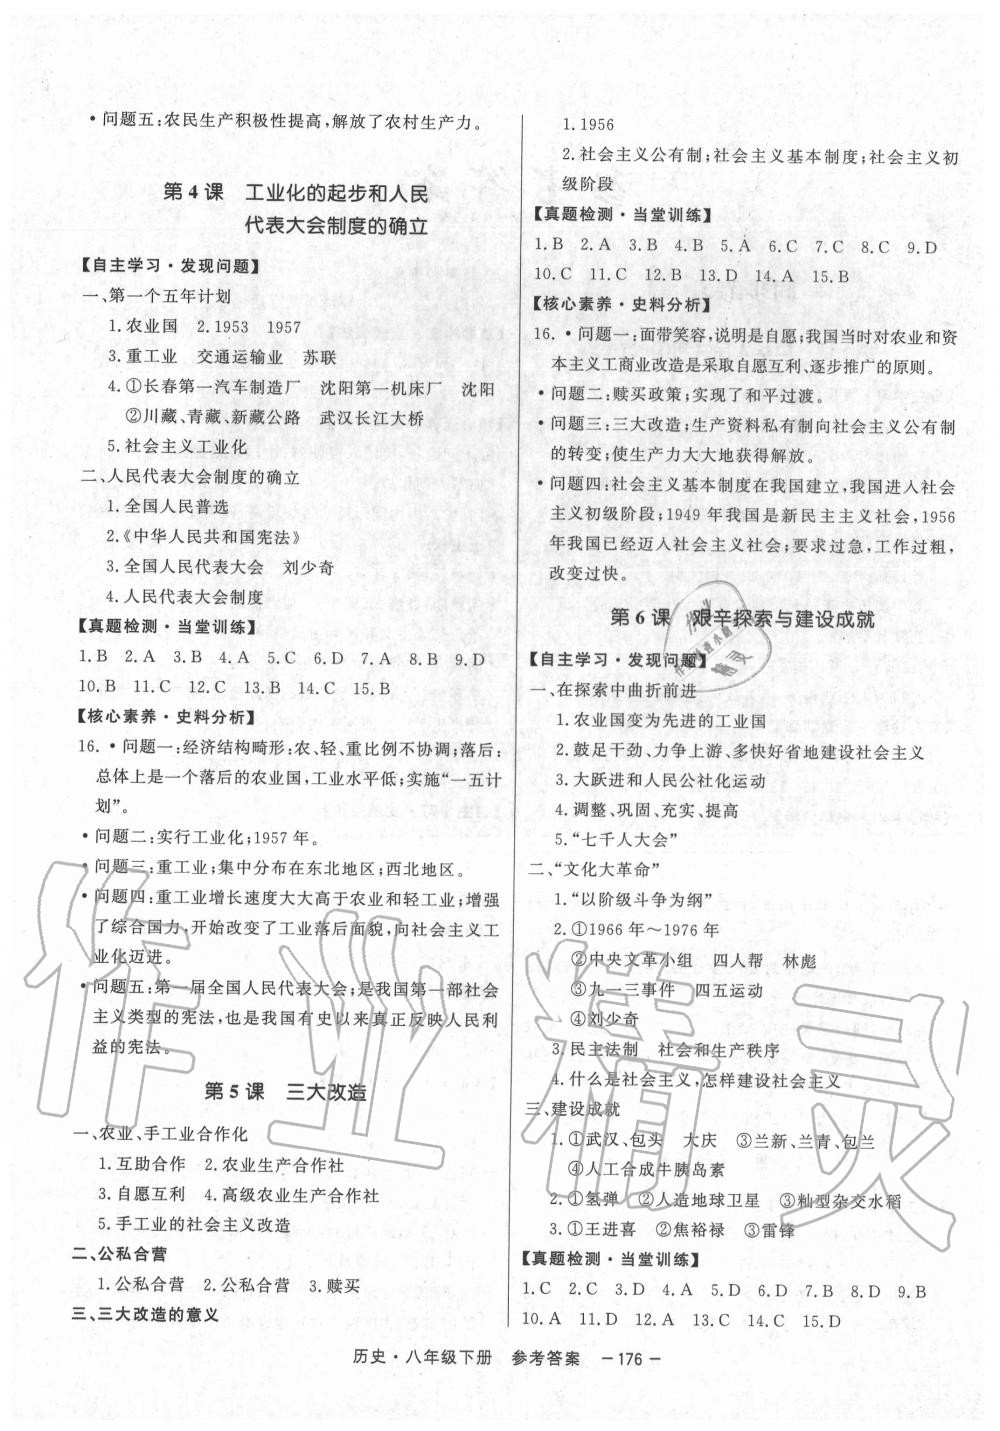 • 问题五:农民生产积极性提高,解放了农村生产力。
第 4 课　工业化的起步和人民
代表大会制度的确立
【自主学习·发现问题】
一、第一个五年计划
1.农业国　2.1953　1957
3.重工业　交通运输业　苏联
4.①长春第一汽车制造厂　沈阳第一机床厂　沈阳
②川藏、青藏、新藏公路　武汉长江大桥
5.社会主义工业化
二、人民代表大会制度的确立
1.全国人民普选
2.《中华人民共和国宪法》
3.全国人民代表大会　刘少奇
4.人民代表大会制度
【真题检测·当堂训练】
1.B　2.A　3.B　4.A　5.C　6.D　7.A　8.B　9.D
10.B　11.C　12.C　13.B　14.C　15.B
【核心素养·史料分析】
16.•问题一:经济结构畸形;农、轻、重比例不协调;落后;
总体上是一个落后的农业国,工业水平低;实施“一五计
划”。
• 问题二:实行工业化;1957 年。
• 问题三:重工业;集中分布在东北地区;西北地区。
• 问题四:重工业增长速度大大高于农业和轻工业;增强
了综合国力,开始改变了工业落后面貌,向社会主义工
业化迈进。
• 问题五:第一届全国人民代表大会;是我国第一部社会
主义类型的宪法,也是我国有史以来真正反映人民利
益的宪法。
第 5 课　三大改造
一、农业、手工业合作化
1.互助合作　2.农业生产合作社
3.自愿互利　4.高级农业生产合作社
5.手工业的社会主义改造
二、公私合营
1.公私合营　2.公私合营　3.赎买
三、三大改造的意义
1.1956
2.社会主义公有制;社会主义基本制度;社会主义初
级阶段
【真题检测·当堂训练】
1.B　2.A　3.B　4.B　5.A　6.C　7.C　8.C　9.D
10.C　11.C　12.B　13.D　14.A　15.B
【核心素养·史料分析】
16.•问题一:面带笑容,说明是自愿;我国当时对农业和资
本主义工商业改造是采取自愿互利、逐步推广的原则。
• 问题二:赎买政策;实现了和平过渡。
• 问题三:三大改造;生产资料私有制向社会主义公有制
的转变;使生产力大大地获得解放。
• 问题四:社会主义基本制度在我国建立,我国进入社会
主义初级阶段;1949 年我国是新民主主义社会,1956
年我国已经迈入社会主义社会;要求过急,工作过粗,
改变过快。
第 6 课　艰辛探索与建设成就
【自主学习·发现问题】
一、在探索中曲折前进
1.农业国变为先进的工业国
2.鼓足干劲、力争上游、多快好省地建设社会主义
3.大跃进和人民公社化运动
4.调整、巩固、充实、提高
5.“七千人大会”
二、“文化大革命”
1.“以阶级斗争为纲”
2.①1966 年～1976 年
②中央文革小组　四人帮　林彪
③九一三事件　四五运动
④刘少奇
3.民主法制　社会和生产秩序
4.什么是社会主义,怎样建设社会主义
三、建设成就
1.①武汉、包头　大庆　③兰新、兰青、包兰
④人工合成牛胰岛素
2.①氢弹　②人造地球卫星　③籼型杂交水稻
3.①王进喜　②焦裕禄　③雷锋
【真题检测·当堂训练】
1.C　2.C　3.D　4.D　5.D　6.D　7.B　8.D　9.B
10.A　11.D　12.A　13.C　14.C　15.D
历史·八年级下册　参考答案　－176－
作业精灵